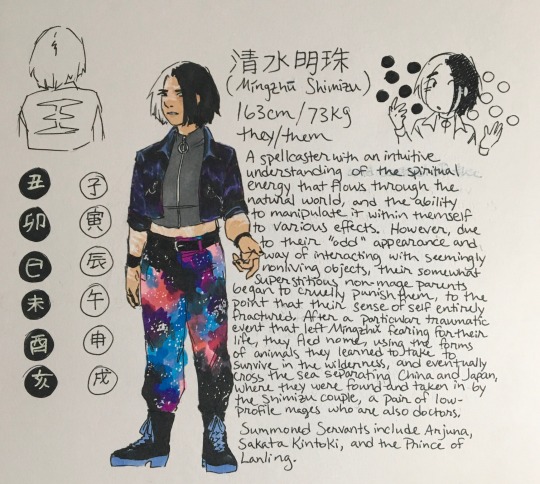 清水明珠
(Míngzhū Shimizu)
163cm/73kg
they/them
A spellcaster with an intuitive
understanding of the spiritual
energy that flows through the
natural world, and the ability
to manipulate it within themself
to various effects. However, due
to their "odd" appearance and
way of interacting with seemingly
nonliving objects, their somewhat
superstitious non-mage parents
began to cruelly punish them, to the
point that their sense of self entirely
fractured. After a particular traumatic
event that left Míngzhū fearing for their
life, they fled home, using the forms
of animals they learned to take to
survive in the wilderness, and eventually
cross the sea separating China and Japan,
where they were found and taken in by
the Shimizu couple, a pair of low-
profile mages who are also doctors.
Summoned Servants include Arjuna,
Sakata Kintoki, and the Prince of
Lanling.
丑 子
卯 寅
巳 辰
未 午
酉 申
亥 戌